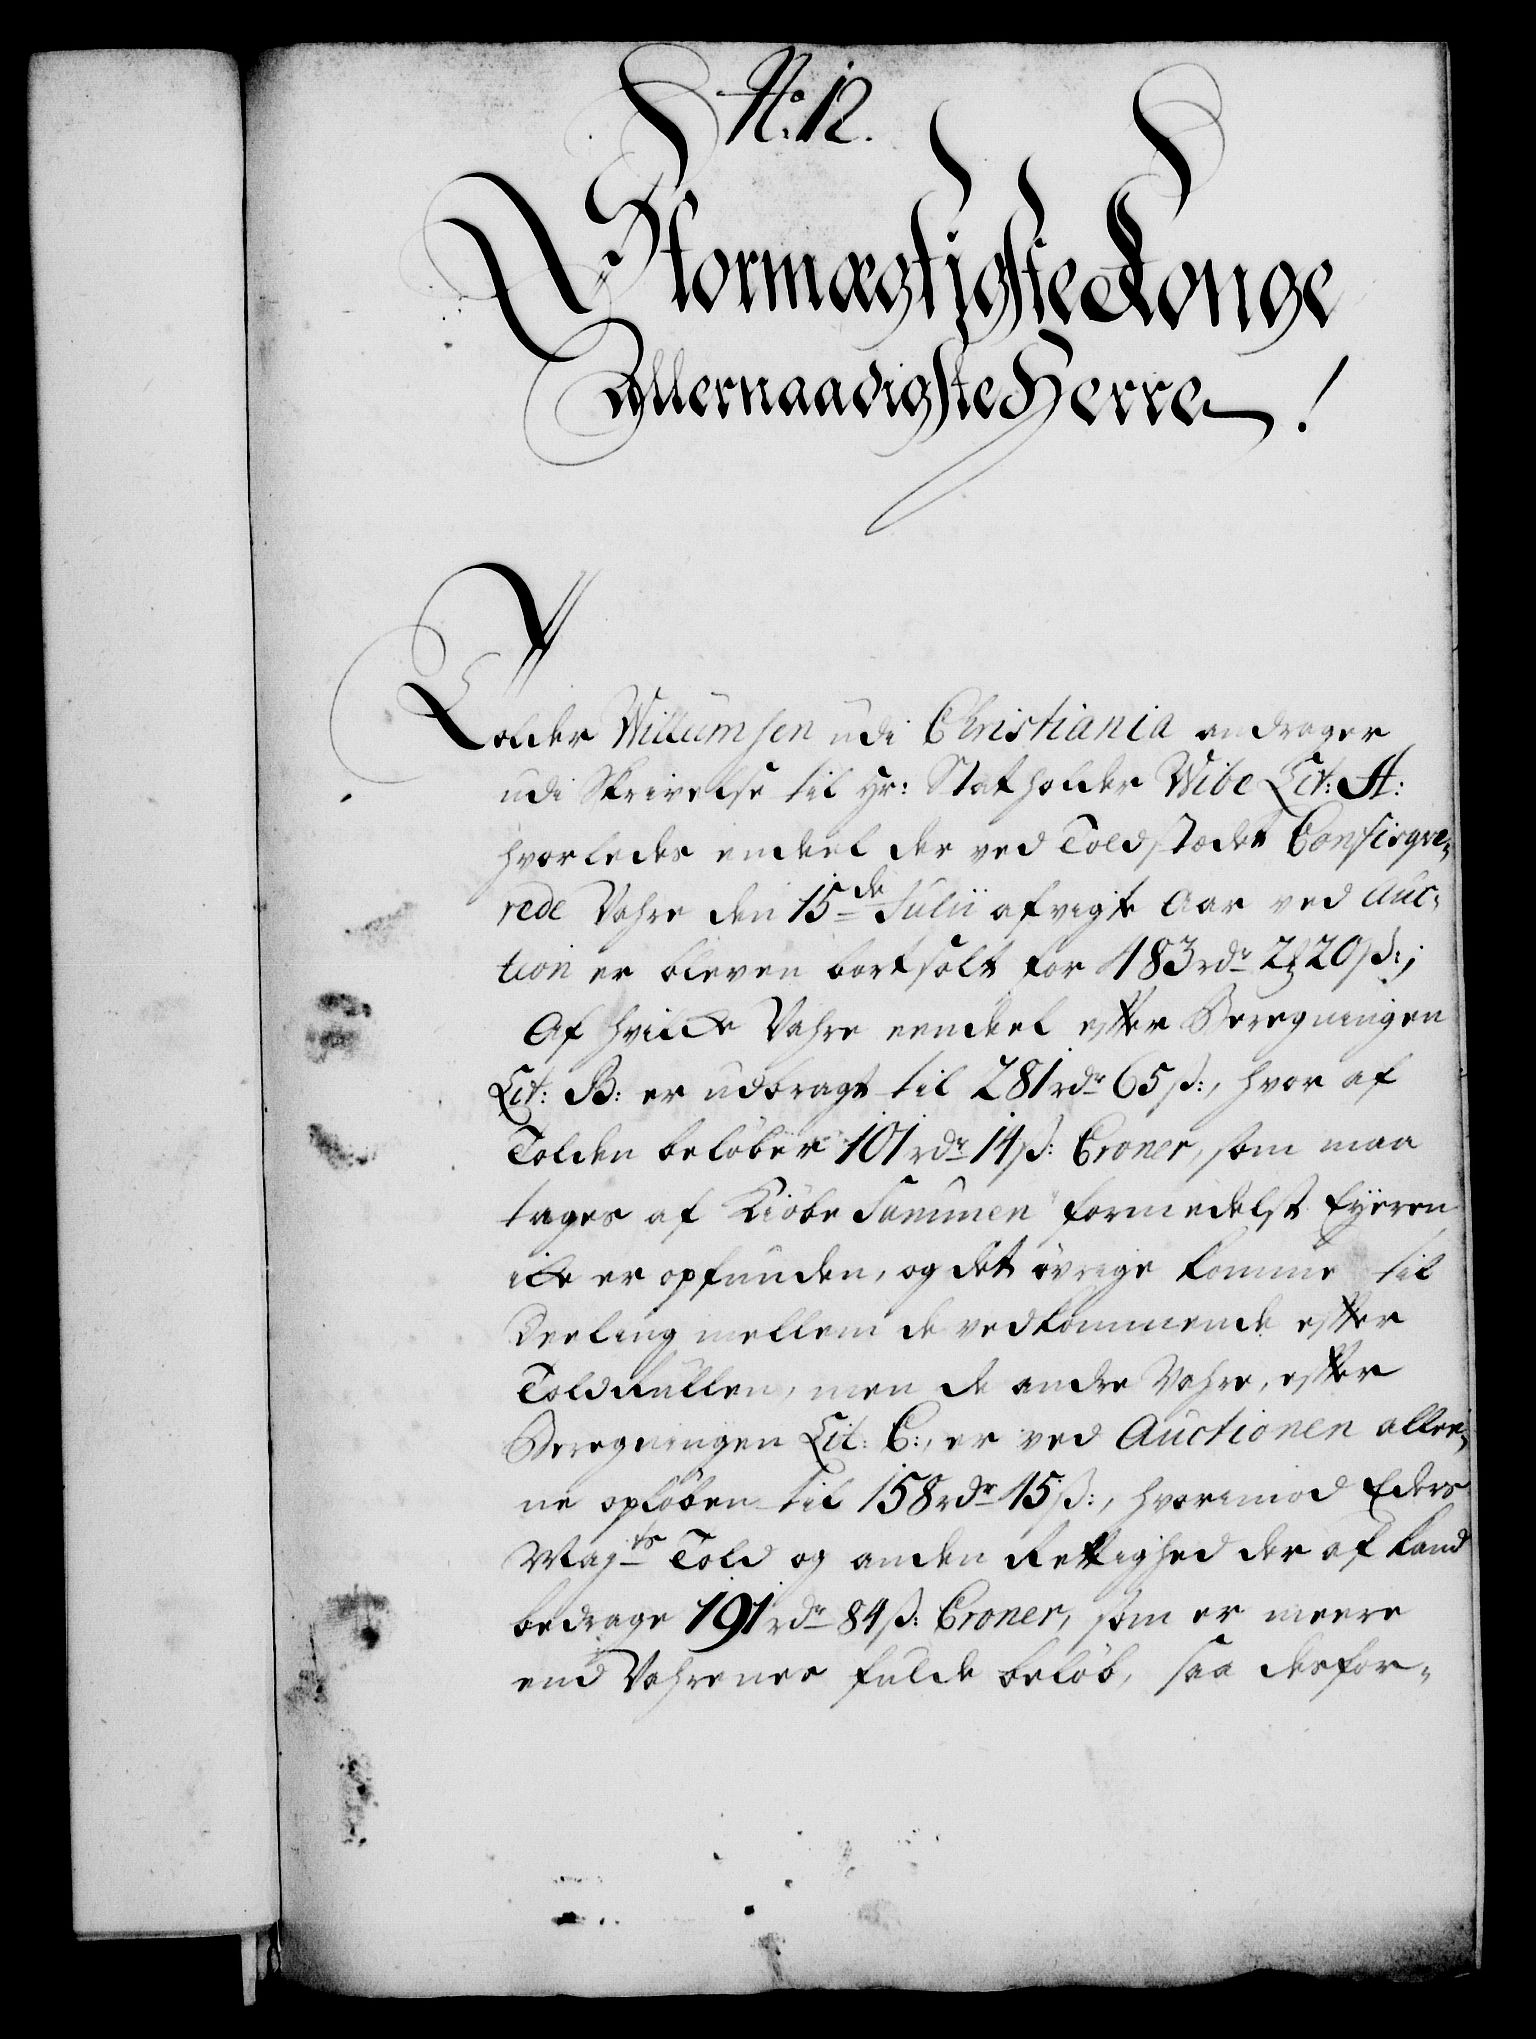 No: 12.
Stormægtigste Konge
Allernaadigste Herre!
Tolder Willumsen udi Christiania andrager
udi Skrivelse til Hr: Statholder Wibe Lit: A:
hvorledes endeel der ved Toldstædet Confisqve„
rede Vahre den 15de Julii afvigte Aar ved Auc„
tion er bleven bortsolt for 483 rdr 2ƶ 20 ß:;
Af hvilcke Vahre eendeel efter Beregningen
Lit: B: er udbragt til 281 rdr 65 ß:, hvor af
Tolden beløber 101 rdr 14 ß: Croner, som maa
tages af Kiøbe Summen formedelst Eyeren
icke er opfunden, og det øvrige komme til
Deeling mellem de vedkommende efter
Toldrullen, men de andre Vahre, efter
Beregningen Lit: C:, er ved Auctionen allee„
ne opløben til 158 rdr 45 ß:, hvorimod Eders
Majts Told og anden Rettighed der af kand
bedrage 191 rdr 84 ß: Croner, som er meere
end Vahrenes fulde beløb, saa desfor„